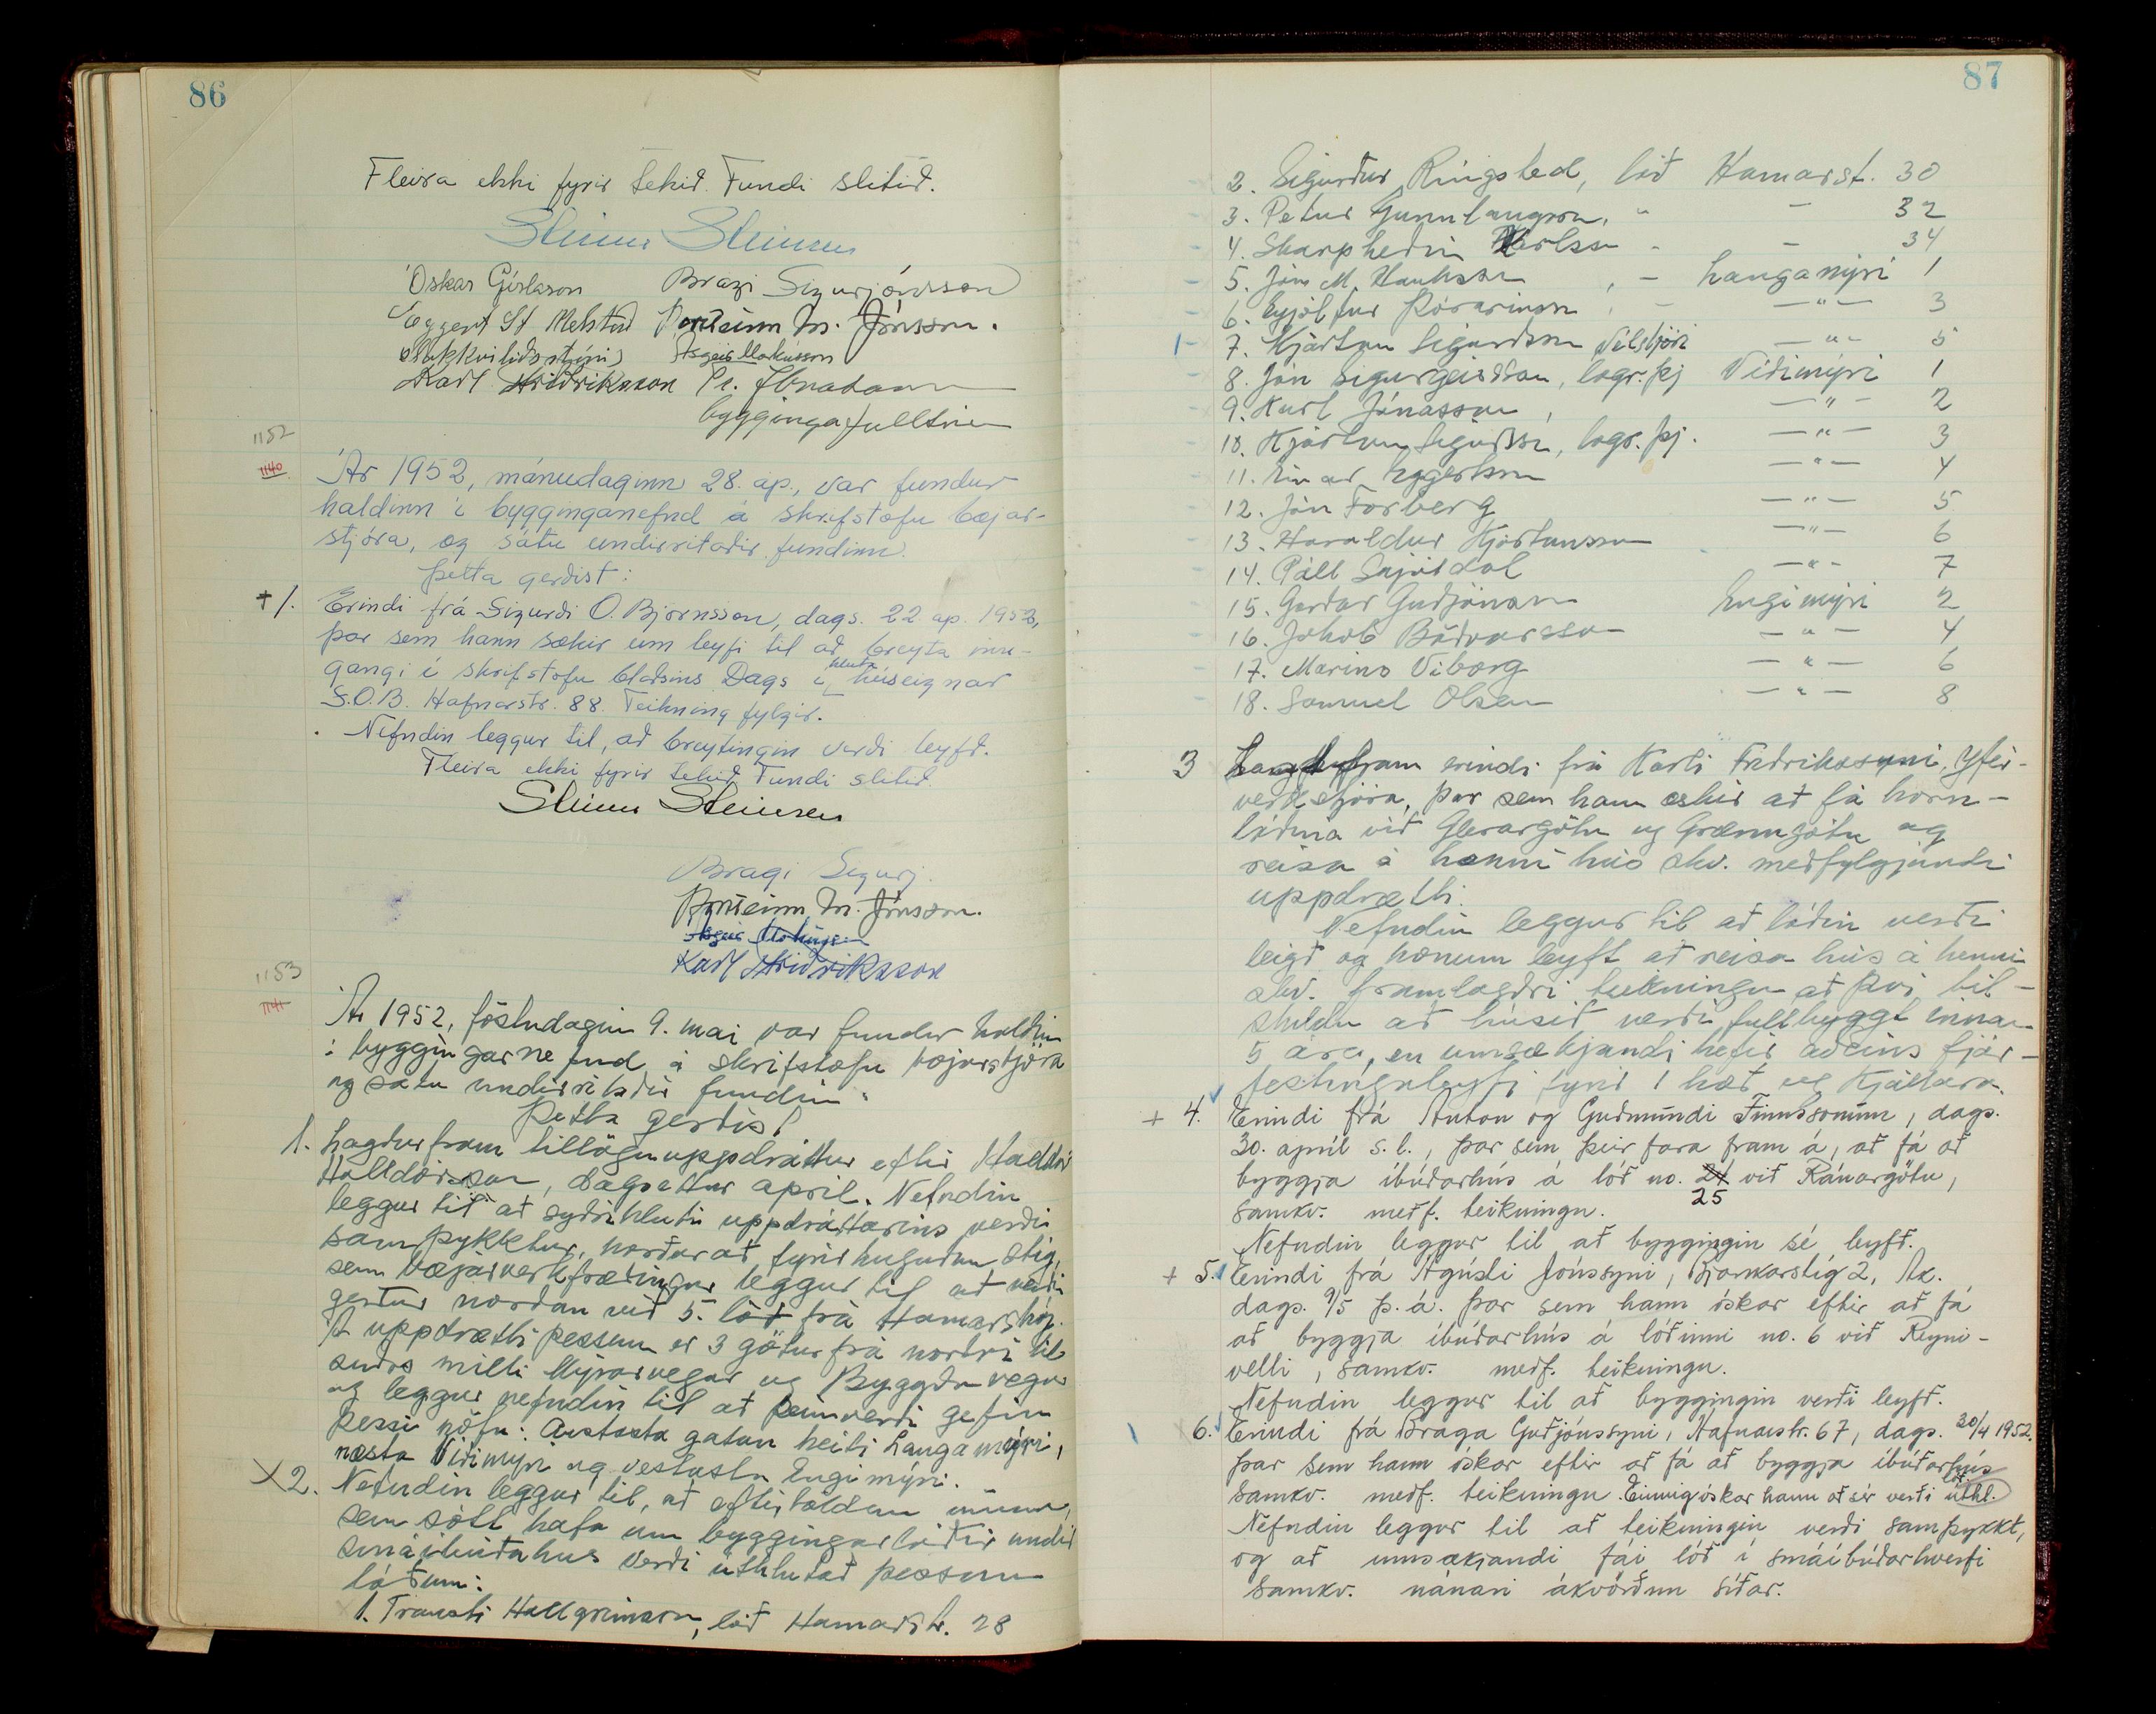 86
Fleira ekki fyrir tekið. Fundi slitið.
Steinn Steinsen
Óskar Gíslason Bragi Sigurjónsson
Eggert St Melstað Þorsteinn M. Jónsson.
slökkviliðsstjóri Ásgeir Markússon
Karl Friðriksson
byggingafulltrúi
1152
1140
Ár 1952, mánudaginn 28. ap., var fundur
haldinn í bygginganefnd á skrifstofu bæjar-
stjóra, og sátu undirritaðir fundinn.
Þetta gerðist:
+ 1. Erindi frá Sigurði O. Björnsson, dags. 22 ap. 1952,
þar sem hann sækir um leyfi til að breyta inn-
gangi í skrifstofu blaðsins Dags í hluta húseignar
S.O.B. Hafnarstr. 88. Teikning fylgir.
Nefndin leggur til, að breytingin verði leyfð.
Fleira ekki fyrir tekið. Fundi slitið.
Steinn Steinsen
Bragi Sigurj.
Þorsteinn M. Jónsson.
Ásgeir Markússon
Karl Friðriksson
1153
1141
Ár 1952, föstudaginn 9. maí var fundur haldinn
í byggingarnefnd á skrifstofu bæjarstjóra
og sátu undirritaðir fundinn.
Þetta gerðist
1. Lagður fram tillöguuppdráttur eftir Halldór
Halldórsson, dagsettur apríl. Nefndin
leggur til að syðri hluti uppdráttarins verði
samþykktur, norður að fyrirhuguðum stíg,
sem bæjarverkfræðingur leggur til að verði
gerður norðan við 5. lóð frá Hamarstíg.
Á uppdrætti þessum er 3 götur frá norðri til
suðurs milli Mýrarvegar og Byggðavegar
og leggur nefndin til að þeim verði gefin
þessi nöfn: Austasta gatan heiti Langamýri,
næsta Víðimýri og vestasta Engimýri.
X 2. Nefndin leggur til, að eftirtöldum mönnum,
sem sótt hafa um byggingarlóðir undir
smáíbúðahús verði úthlutað þessum
lóðum:
1. Trausti Hallgrímsson, lóð Hamarst. 28
87
2. Sigurður Ringsted, lóð Hamarst. 30
3. Petur Gunnlaugsson, " — 32
4. Skarphéðin Karlsson - — 34
5. Jón M. Hauksson, - Langamýri 1
6. Eyjólfur Þórarinson - —"— 3
7. Kjartan Sigurðsson bílstjóri —"— 5
8. Jón Sigurgeirsson, lögr.þj Víðimýri 1
9. Karl Jónasson, —"— 2
10. Kjartan Sigurðsson, lögr.þj. —"— 3
11. Einar Eggertsson —"— 4
12. Jón Forberg —"— 5
13. Haraldur Kjartansson —"— 6
14. Páll —"— 7
15. Garðar Guðjónsson Engimýri 2
16. Jakob Böðvarsson —"— 4
17. Marino Viborg —"— 6
18. Samuel Olsen —"— 8
3 fram erindi frá Karli Friðrikssyni, yfir-
verkstjóra, þar sem hann óskir að fá horn-
lóðina við Glerárgötu og Grænugötu og
reisa á henni hús skv. meðfylgjandi
uppdrætti.
Nefndin leggur til að lóðin verði
leigð og honum leyft að reisa hús á henni
skv. framlagðri teikningu að því til-
skildu að húsið verði fullbyggt innan
5 ára, en umsækjandi hefir aðeins fjár-
festingaleyfi fyrir 1 hæð og kjallara.
+ 4. Erindi frá Anton og Guðmundi Finnssonum, dags.
30. apríl s.l., þar sem þeir fara fram á, að fá að
byggja íbúðarhús á lóð no. 21 25 við Ránargötu,
samkv. meðf. teikningu.
Nefndin leggur til að byggingin sé leyfð.
+ 5. Erindi frá Ágústi Jónssyni, Bjarkarstíg 2, Ak.
dags. 9/5 þ.á. þar sem hann óskar eftir að fá
að byggja íbúðarhús á lóðinni no. 6 við Reyni-
velli, samkv. meðf. teikningu.
Nefndin leggur til að byggingin verði leyfð.
6. Erindi frá Braga Guðjónssyni, Hafnarstr. 67, dags. 30/4 1952.
þar sem hann óskar eftir að fá að byggja íbúðarhús
samkv. meðf. teikningu. Einnig óskar hann að sér verði úthl. lóð.
Nefndin leggur til að teikningin verði samþykkt,
og að umsækjandi fái lóð í smáíbúðarhverfi
samkv. nánari ákvörðun síðar.